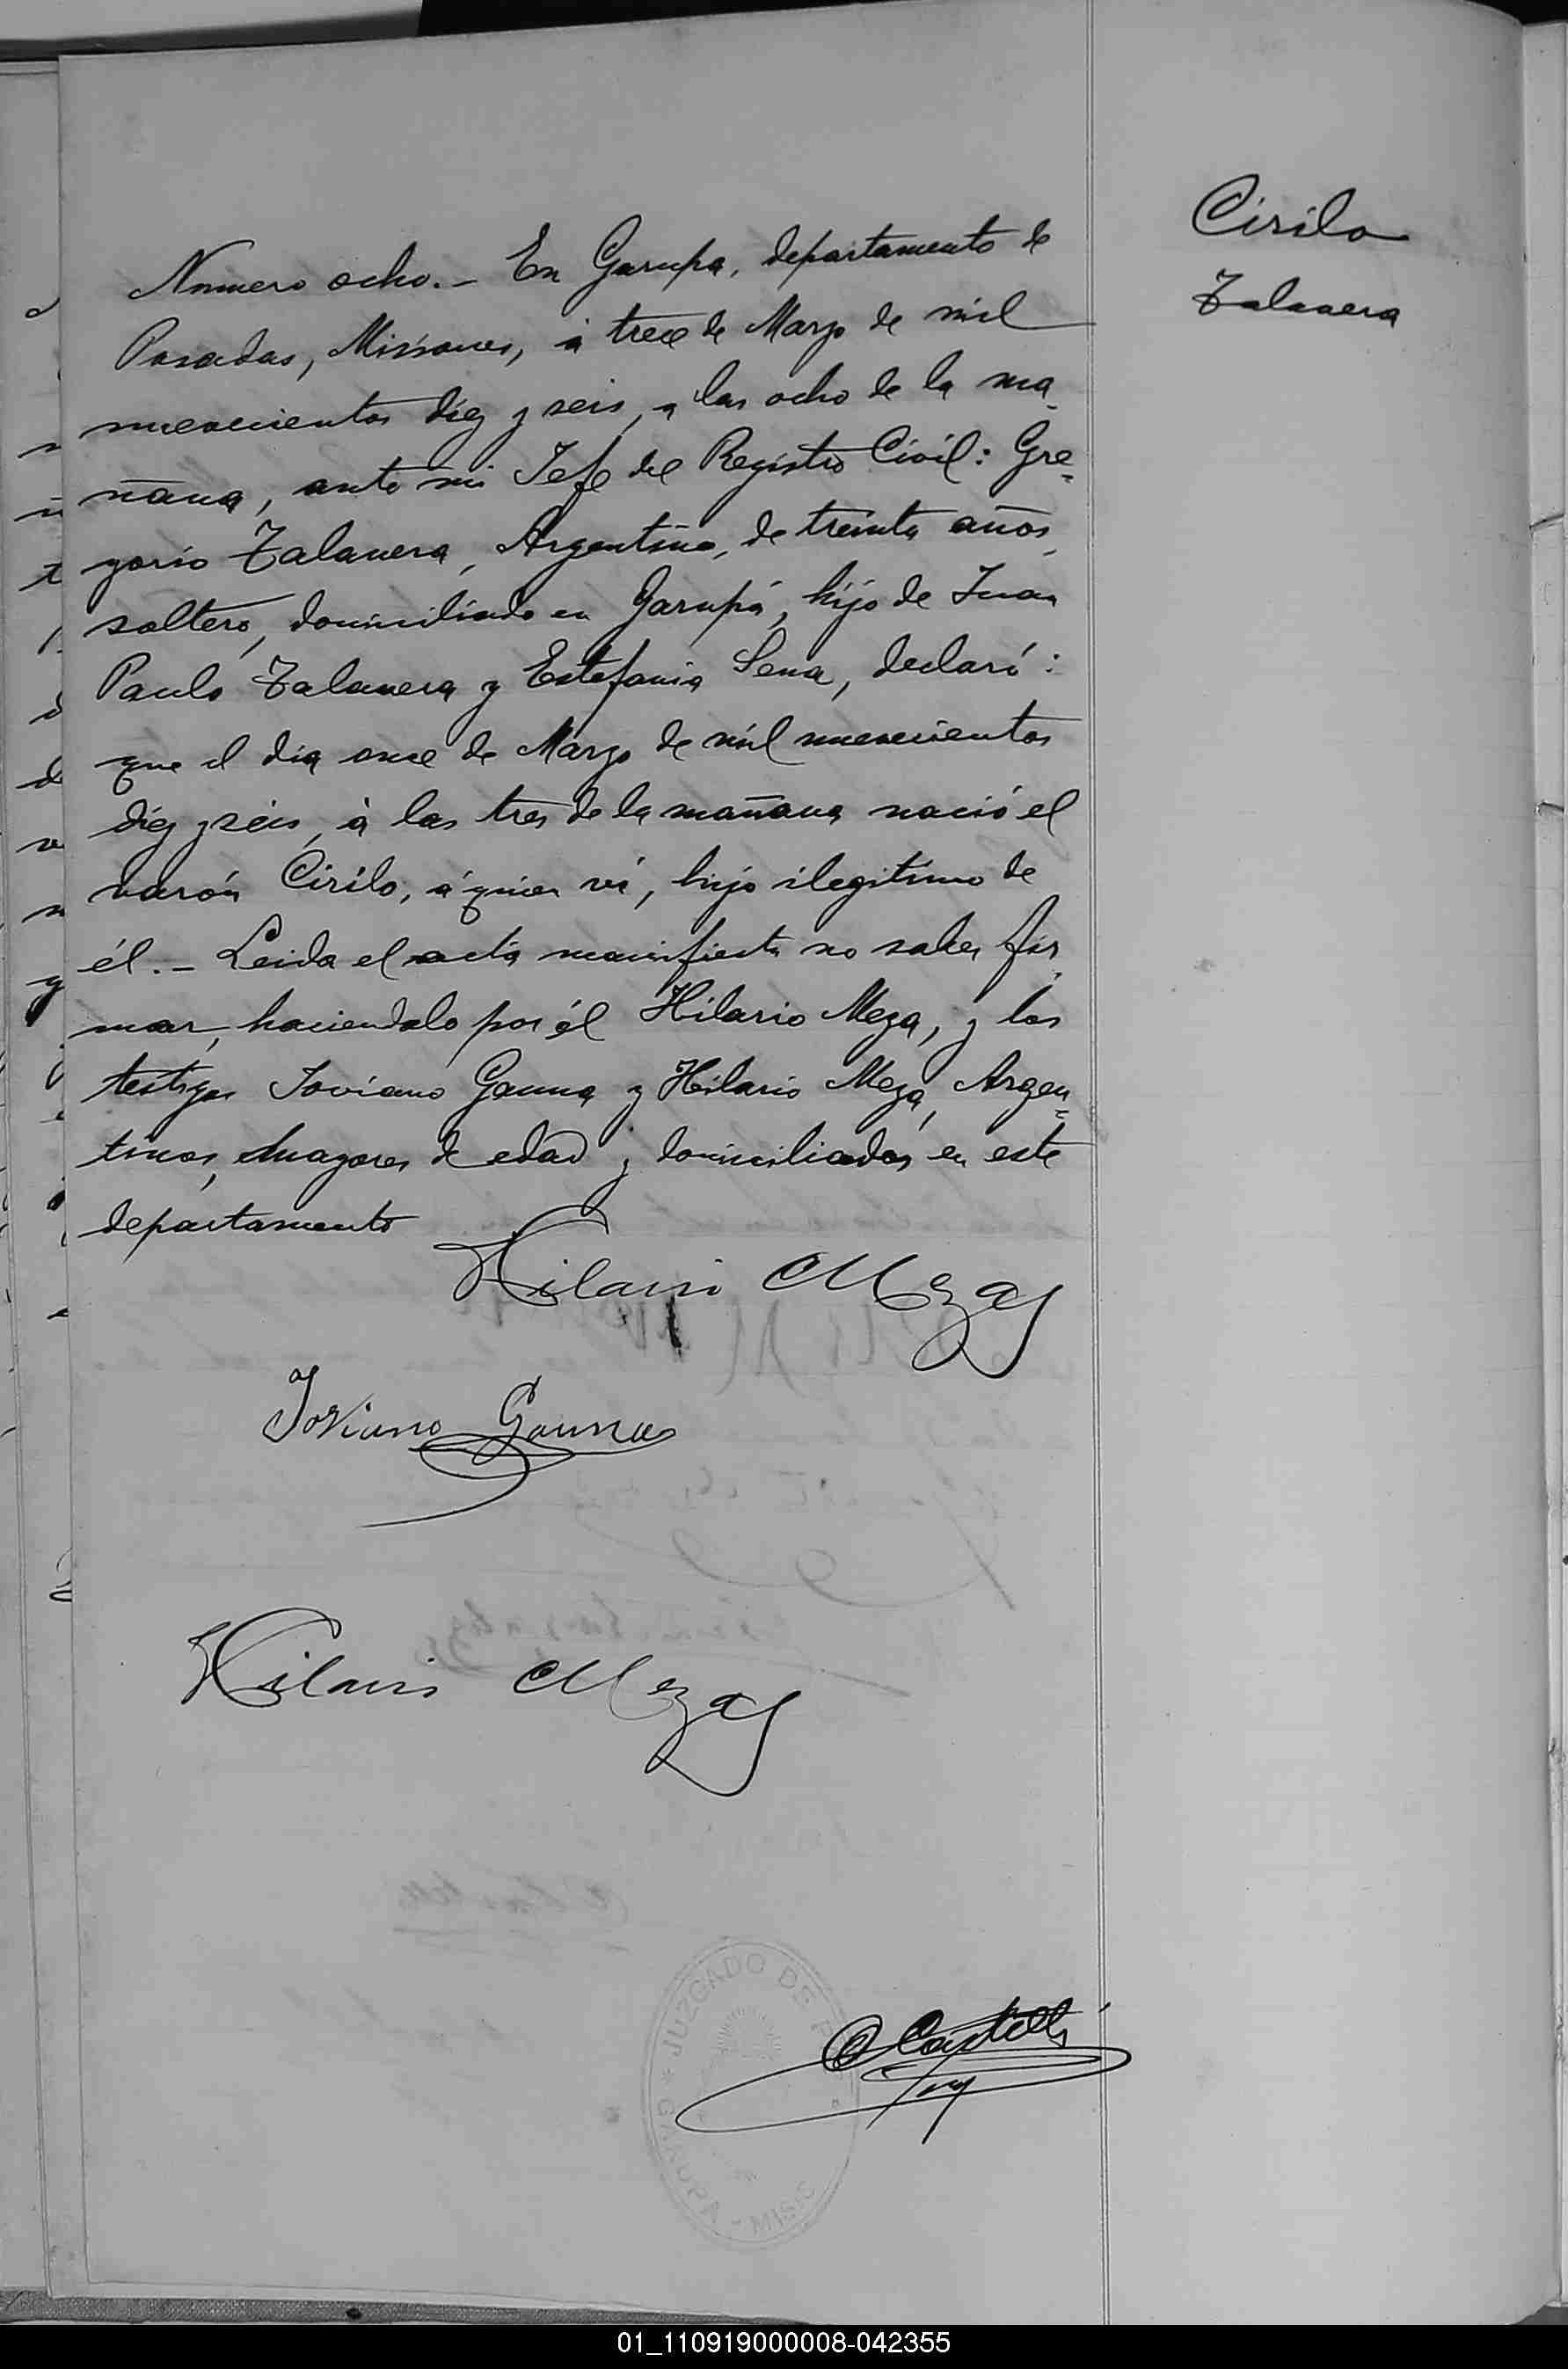 Cirilo
Talavera
Numero ocho.- En Garupa, departamento de
Posadas, Misiones, á trece de Marzo de mil
novecientos diez y seis, a las ocho de la ma-
ñana, ante mi Jefe del Registro Civil: Gre-
gorio Talavera, Argentino, de treinta años,
soltero, domiciliado en Garupá, hijo de Juan
Paulo Talavera y Estefania Sena, declaró:
que el dia once de Marzo de mil novecientos
diez y seis, á las tres de la mañana nació el
varón Cirilo, á quien ví, hijo ilegitimo de
él.- Leida el acta manifiesta no saber fir-
mar, haciendolo por él Hilario Meza, y los
testigos Joviano Gauna y Hilario Meza, Argen-
tinos, mayores de edad y domiciliados en este
departamento
Hilario Meza
Joviano Gauna
Hilario Meza
JUZGADO DE P
GARUPA - MIS
Castelli
01_110919000008-042355